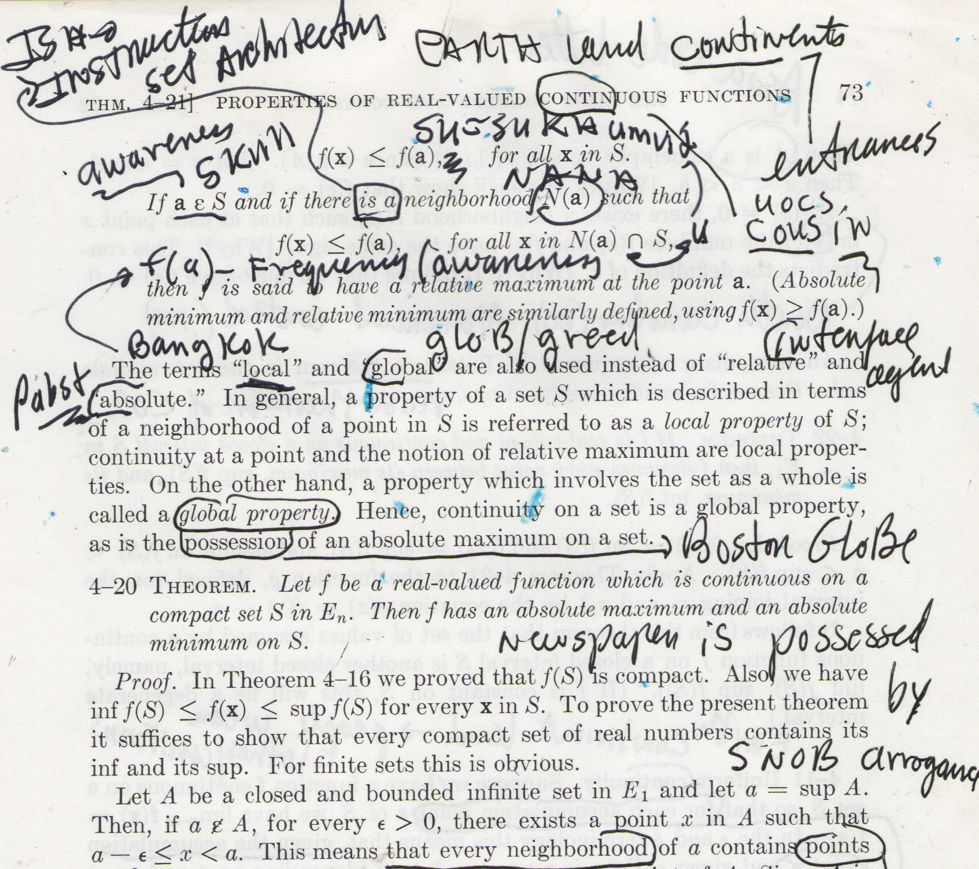 IS A →
Instruction
set Architecture
EARTH land continents
THM. 4–21] PROPERTIES OF REAL-VALUED CONTINUOUS FUNCTIONS 73
awareness
SKUN
SU-SU KHA uming
entrances
f(x) ≤ f(a), for all x in S.
NANA
If a ε S and if there is a neighborhood N(a) such that
uocs,
cous in
f(x) ≤ f(a), for all x in N(a) ∩ S, u
f(a) – Frequency (awareness)
then f is said to have a relative maximum at the point a. (Absolute
minimum and relative minimum are similarly defined, using f(x) ≥ f(a).)
Bangkok
gloB/greed
interface
agent
Pabst
The terms “local” and “global” are also used instead of “relative” and
“absolute.” In general, a property of a set S which is described in terms
of a neighborhood of a point in S is referred to as a local property of S;
continuity at a point and the notion of relative maximum are local proper-
ties. On the other hand, a property which involves the set as a whole is
called a global property. Hence, continuity on a set is a global property,
as is the possession of an absolute maximum on a set.
Boston GloBe
4–20 THEOREM. Let f be a real-valued function which is continuous on a
compact set S in Eₙ. Then f has an absolute maximum and an absolute
minimum on S.
newspaper is possessed
by
Proof. In Theorem 4–16 we proved that f(S) is compact. Also, we have
inf f(S) ≤ f(x) ≤ sup f(S) for every x in S. To prove the present theorem
it suffices to show that every compact set of real numbers contains its
inf and its sup. For finite sets this is obvious.
SNOB arrogance
Let A be a closed and bounded infinite set in E₁ and let a = sup A.
Then, if a ∉ A, for every ε > 0, there exists a point x in A such that
a − ε ≤ x < a. This means that every neighborhood of a contains points